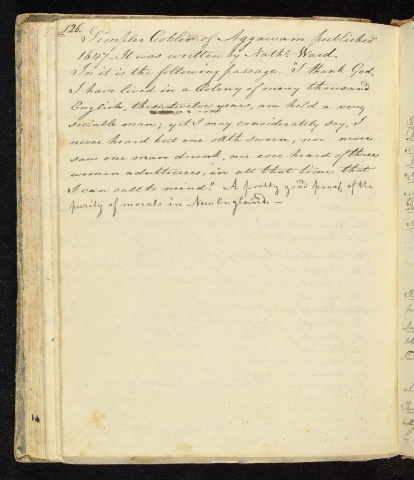 126.
Simple Cobler of Aggawam published
1647. It was written by Nathl. Ward.
In it is the following passage. "I thank God,
I have lived in a Colony of many thousand
English, these twelve years, am held a very
sociable man; yet I may considerately say, I
never heard but one oath sworn, nor never
saw one man drunk, nor ever heard of three
women adultresses, in all that time that
I can call to mind." A pretty good proof of the
purity of morals in New England.—